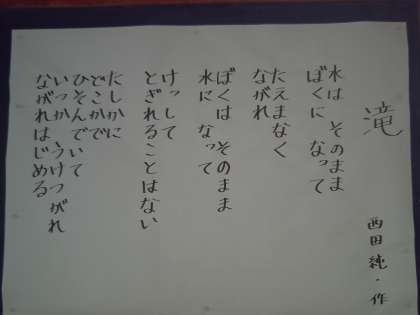 滝
西田純・作
水は そのまま
ぼくに なって
たえまなく
ながれ
ぼくは そのまま
水に なって
けっして
とぎれることはない
たしかに
どこかで
ひそんでいて
いつか うけつがれ
ながれはじめる